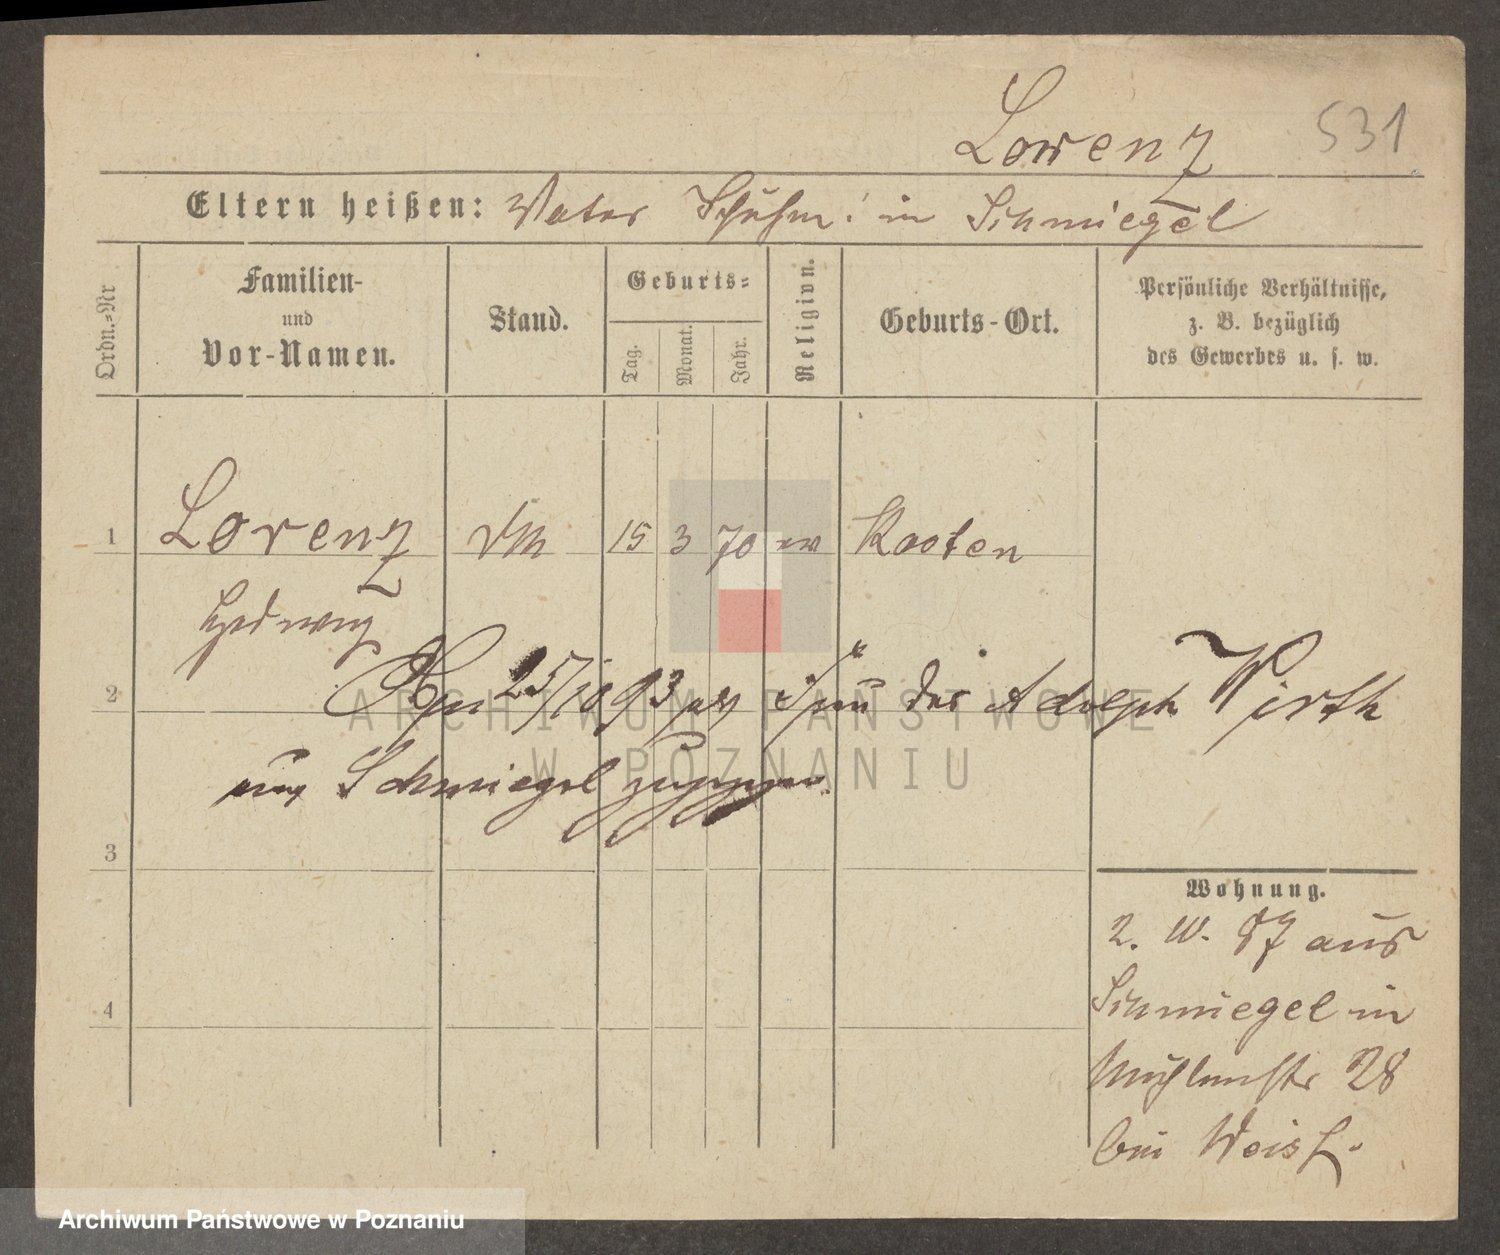 Lorenz 531
Eltern heißen: Vater Schuhm: in Schmiegel
Ordn.-Nr
Familien-
und
Vor-Namen.
Stand.
Geburts-
Tag.
Monat.
Jahr.
Religion.
Geburts-Ort.
Persönliche Verhältnisse,
z. B. bezüglich
des Gewerbes u. s. w.
1 Lorenz 15 3 70 ev Kosten
Hedwig
2 25/10 93 als Frau des Adolph Wirth
nach Schmiegel
3
4
Wohnung.
87 aus
Schmiegel in
Mühlenstr 28
bei
ARCHIWUM PAŃSTWOWE
W POZNANIU
Archiwum Państwowe w Poznaniu